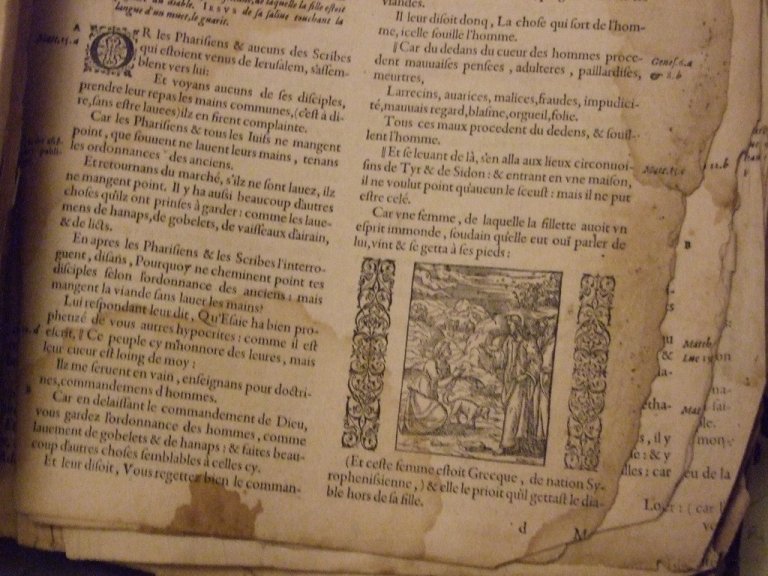 du diable. IESVS de sa saliue touchant la
langue d'un muet, le guarit.
A
Matt.15.a
OR les Pharisiens & aucuns des Scribes
qui estoient venus de Ierusalem, s'assem-
blent vers lui:
Et voyans aucuns de ses disciples,
prendre leur repas les mains communes, (c'est à di-
re, sans estre lauees) ilz en firent complainte.
Car les Pharisiens & tous les Iuifs ne mangent
point, que souuent ne lauent leurs mains, tenans
les ordonnances des anciens.
Et retournans du marché, s'ilz ne sont lauez, ilz
ne mangent point. Il y ha aussi beaucoup d'autres
choses qu'ilz ont prinses à garder: comme les laue-
mens de hanaps, de gobelets, de vaisseaux d'airain,
& de licts.
En apres les Pharisiens & les Scribes l'interro-
guent, disans, Pourquoy ne cheminent point tes
disciples selon l'ordonnance des anciens: mais
mangent la viande sans lauer les mains?
Lui respondant leur dit, Qu'Esaie ha bien pro-
pheuzé de vous autres hypocrites: comme il est
escrit, ‖ Ce peuple cy m'honnore des leures, mais
leur cueur est loing de moy:
Ilz me seruent en vain, enseignans pour doctri-
nes, commandemens d'hommes.
B
Car en delaissant le commandement de Dieu,
vous gardez l'ordonnance des hommes, comme
lauement de gobelets & de hanaps: & faites beau-
coup d'autres choses semblables à celles cy.
Et leur disoit, Vous regettez bien le comman-
viandes.
Il leur disoit donq, La chose qui sort de l'hom-
me, icelle souille l'homme.
‖ Car du dedans du cueur des hommes proce-
dent mauuaises pensees, adulteres, paillardises,
meurtres,
Genes.6.a
& 8.b
Larrecins, auarices, malices, fraudes, impudici-
té, mauuais regard, blasme, orgueil, folie.
Tous ces maux procedent du dedens, & souil-
lent l'homme.
‖ Et se leuant de là, s'en alla aux lieux circonuoi-
sins de Tyr & de Sidon: & entrant en vne maison,
il ne voulut point qu'aucun le sceust: mais il ne put
estre celé.
Matt.15.c
Car vne femme, de laquelle la fillette auoit vn
esprit immonde, soudain qu'elle eut ouï parler de
lui, vint & se getta à ses pieds:
B
(Et ceste femme estoit Grecque, de nation Sy-
rophenissienne,) & elle le prioit qu'il gettast le dia-
ble hors de sa fille.
d
22.b
Matth
Luc